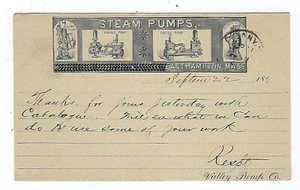 STEAM PUMPS.
EASTHAMPTON, MASS
Septem 22 189
Thanks for yours yesterday with
Catalogue. Will see what we can
do to use some of your work
Resp't
Valley Pump Co.